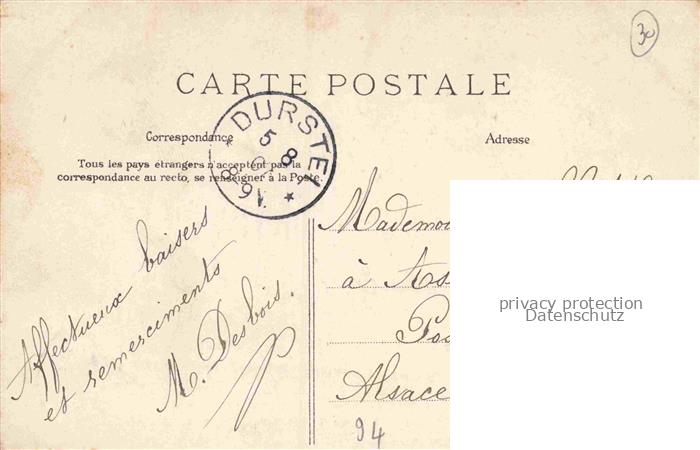 30
CARTE POSTALE
Correspondance
Adresse
Tous les pays étrangers n'acceptent pas la
correspondance au recto, se renseigner à la Poste.
DURSTEL
5
8
Affectueux baisers
et remerciments
M. Desbois.
Mademo
à As
Po
Alsace
94
privacy protection
Datenschutz